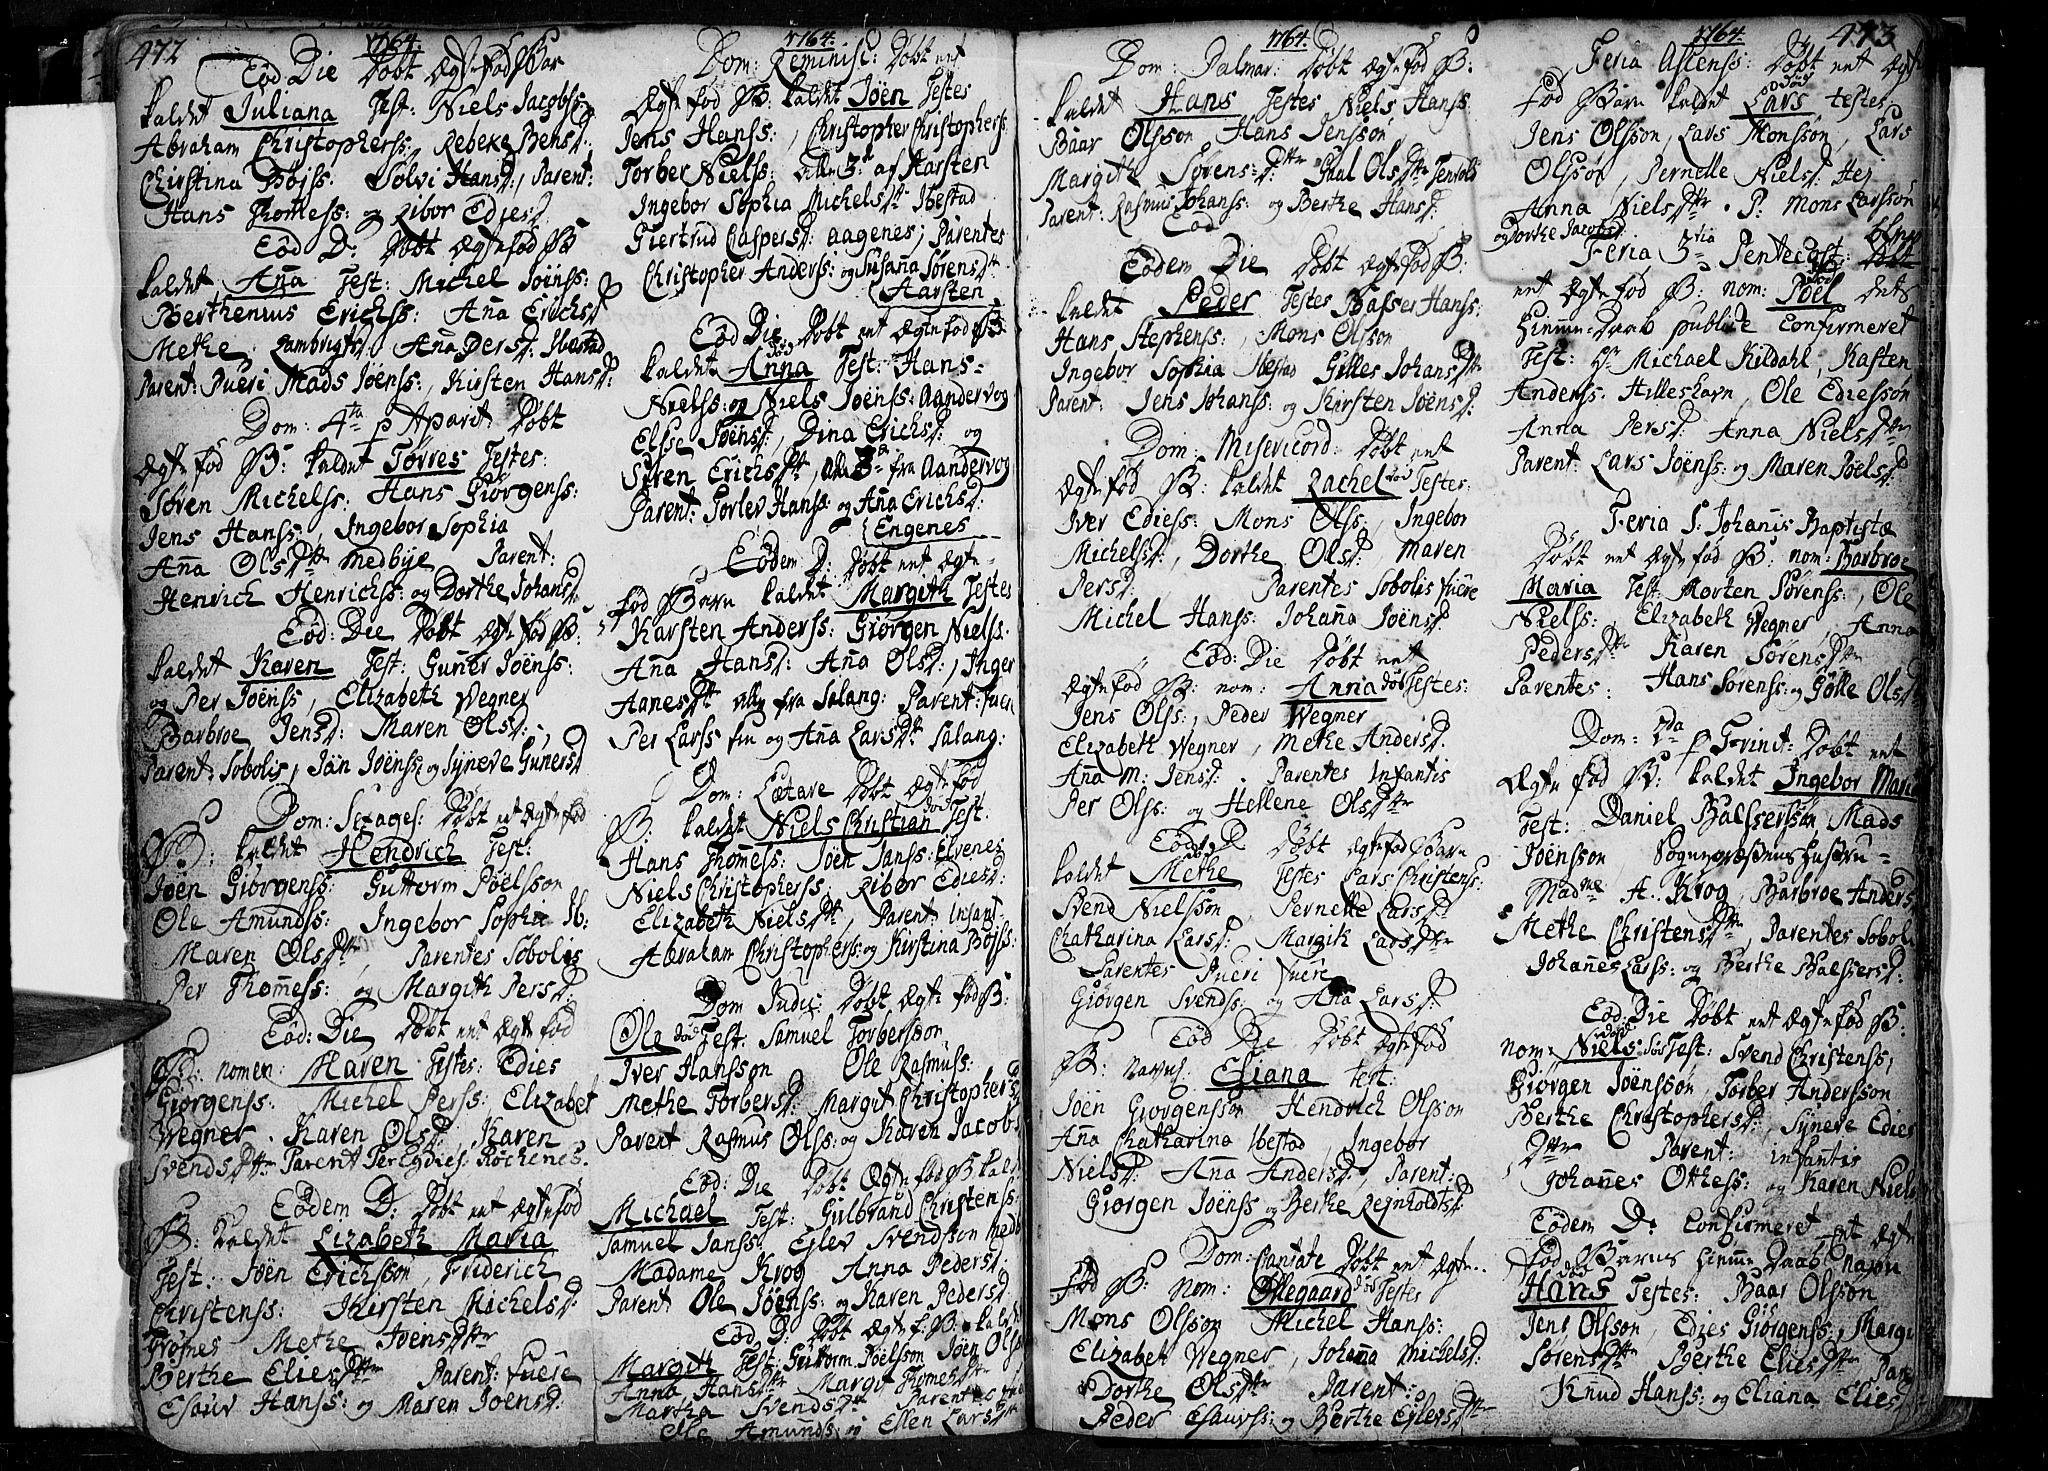 472
1764.
Eod Die Døbt Ægtefød Bar
kaldet Juliana Test: Niels Jacobss:
Abraham Christopherss:, Rebeke Bensd:
Christina Bojss: Sølvi Hansd:, Parent:
Hans Thomess: og Ribor Ediesd:
Eod D: Døbt Ægtefød B:
kaldet Anna Test: Michel Joënss:
Berthenius Erichss: Ana Erichsd
Methe Lambrigtsd: Ana Persd: Ibestad
Parent: Pueri Mads Joënss:, Kirsten Hansd:
Dom: 4ta p Aparit Døbt
Ægtefød B: kaldet Torres Testes:
Søren Michelss: Hans Giørgenss:
Jens Hanss:, Ingebor Sophia
Ana Olsdttr Medbye Parent:
Henrich Henrichss: og Dorthe Johansd
Eod: Die Døbt Ægtefød B:
kaldet Karen Test: Guner Joënss:
og Per Joënss, Elizabeth Wegner
Barbroe Jensd: Maren Olsd:,
Parent: Sobolis, Jan Joënss: og Syneve Gunersd
Dom: Sexages: Døbt et Ægtefød
B: kaldet Hendrich Test:
Joën Giørgenss: Guttorm Poëlsson
Ole Amundss: Ingebor Sophia Ib:
Maren Olsdttr, Parentes Sobolis
Per Thomess: og Margith Persd:
Eod: Die Døbt eet Ægtefød
B: nomen: Maren Testes: Edies
Giørgenss: Michel Perss: Elizabet
Wegner. Karen Olsd:, Karen
Svendsdttr Parent Per Edies: Rochenes.
Eodem D: Døbt eet Ægtefød
B: kaldet Elizabeth Maria
Test: Joën Erichsson, Friderich
Christenss: Kirsten Michelsd:
Methe Joënsdttr
Berthe Eliesdttr Parent: fuere
Esauv Hanss: og Maren Joensd:
1764.
Dom: Reminisc: Døbt eet
Ægtefød B: kaldet Joën Testes
Jens Hanss:, Christopher Christopherss:
Torber Nielss: alle 3de af Harsten
Ingebor Sophia Michelsdttr Ibestad
Giertrud Caspersd: Aagenes; Parentes
Christopher Anderss: og Susana Sørensdttr
Harsten
Eod Die Døbt eet Ægtefød B:
død
kaldet Anna Test: Hans
Nielss: og Niels Joënss: Aandervog
Else Joënsd:, Dina Erichsd: og
Siren Erichsdttr, alle 3de fra Aandervog
Parent: Torlev Hanss: og Ana Erichsd:
Engenes
Eodem D: Døbt eet Ægte
fød Barn kaldet Margith Testes
Karsten Anderss: Giørgen Nielss:
Ana Hansd: Ana Olsd:, Inger
Aanesdttr alle fra Salang: Parent: fuer
Per Larss fin og Ana Larsdttr Salang:
Dom: Lætare Døbt Ægtefød
død
B: kaldet Niels Christian Test:
Hans Thomess: Joën Janss: Elvenes
Niels Christopherss: Ribor Ediesd:
Elizabeth Nielsdttr, Parent: Infant
Abraham Christopherss: og Kirstina Bojss:
Dom Judic: Døbt Ægtefød B:
Ole død Test: Samuel Torbersson
Iver Hansson Ole Rasmuss:
Methe Torbersd: Margit Christophersd
Parent Rasmus Olss: og Karen Jacobs
Eod: Die Døbt Ægtefød B: kald
Michael Test: Gulbrand Christenss:
Samuel Janss: Ejlev Svendsson Medb
Madame Krog Anna Pedersd:
Parent Ole Joënss: og Karen Pedersd:
Eod D: Døbt Ægtef: B: kalde
Margith Test: Guttorm Poëlsson Joën Olss
Anna Hansdttr Margit Thomesdttr
Martha Svendsdttr Parent
Ole Amundss: og Ellen Larsdttr
1764.
Dom: Palmar: Døbt Ægtefød B:
kaldet Hans Testes Niels Hanss:
Baar Olsson Hans Jensson,
Margith Sørens:d: Paal Olsdttr
Parent: Rasmus Johanss: og Berthe Hansd:
Eod
Eodem Die Døbt Ægtefød B:
kaldet Peder Testes Balser Hanss:
Hans Stephenss:, Mons Olsson
Ingebor Sophia Ibestad Gilles Johansdttr
Parent: Jens Johanss: og Kirsten Joënsd:
Dom: Misericord: Døbt eet
Ægtefød B: kaldet Rachel død Testes:
Iver Ediess: Mons Olss:, Ingebor
Michelsd:, Dorthe Olsd:, Maren
Persd: Parentes Sobolis fuere
Michel Hanss: Johana Joënsd:
Eod: Die Døbt eet
Ægtefød B: nom: Anna død Testes:
Jens Olss:, Peder Wegner
Elizabeth Wegner, Methe Andersd:
Ana M: Jensd:. Parentes Infantis
Per Olss: og Hellene Olsdttr
Eod D Døbt Ægtefød Barn
død
kaldet Methe Testes Lars Christenss:
Svend Nielsson, Pernelle Larsd:
Chatharina Larsd: Margith Larsdttr
Parentes Pueri fuere
Giørgen Svendss: og Ana Larsd:
Eod Die Døbt Ægtefød
B: navnl Eliana Test:
Joën Giørgensson Hendrich Olsson
Ana Chatharina Ibestad, Ingebor
Nielsd: Ana Andersd:, Parent:
Giørgen Joënss og Berthe Rejnholdtsd:
Dom: Cantate Døbt eet Ægte
fød B: nom: Ollegaard død Testes
Mons Olsson Michel Hanss:
Elizabet Wegner, Johana Michelsd:
Dorthe Olsdttr Parent:
Peder Esauvss: og Berthe Ejlersdttr
1764.
473
Feria Ascens: Døbt eet Ægte
død
fød Barn kaldet Lars Testes
Jens Olsson, Lars Monssøn, Lars
Olssøn, Pernelle Nielsd:
Anna Nielsdttr. P: Mons Larssøn
og Dorthe Jacobsd:
Feria 3tia Pentecost:
død
eet Ægtefød B: nom: Poël dets
Hiemme-Daab publice Confirmeret
Test: Hr Michael Kildahl, Kasten
Anderss: Hilleshavn, Ole Ediessøn
Anna Persd: Anna Nielsdttr
Parent: Lars Joënss: og Maren Poëlsd:
Feria S: Johanis Baptistæ
Døbt eet Ægtefød B: nom: Barbroe
Maria Test: Morten Sørenss:, Ole
Nielss:, Elizabeth Wegner, Anna
Pedersdttr Karen Sørensdttr
Parentes: Hans Sørenss: og Gølle Olsd
Dom: 2da p Trinit: Døbt eet
Ægtefød B: kaldet Ingebor Maria
Test: Daniel Balssersøn, Mads
Joënsson Sognepræstens Hustru
Madme A. Krog, Barbroe Anders
Methe Christensdttr, Parentes Sobol
Johanes Larss: og Berthe Balssersd:
Eod: Die Døbt eet Ægtefød B:
nom: Niels død Test: Svend Christenss;
Giørgen Joënsson, Torber Andersson
Berthe Christophersd:, Syneve Edies
dttr Parent: infantis
Johanes Othess: og Karen Niels
Eodem D: Confirmeret et Ægte
fød Barns Hiemme Daab nafn
død
Hans Testes: Baar Olssøn
Jens Olsson, Edies Giørgenss:, Margi
Sørensdttr Berthe Eliesdttr Par
Knud Hanss: og Eliana Elies